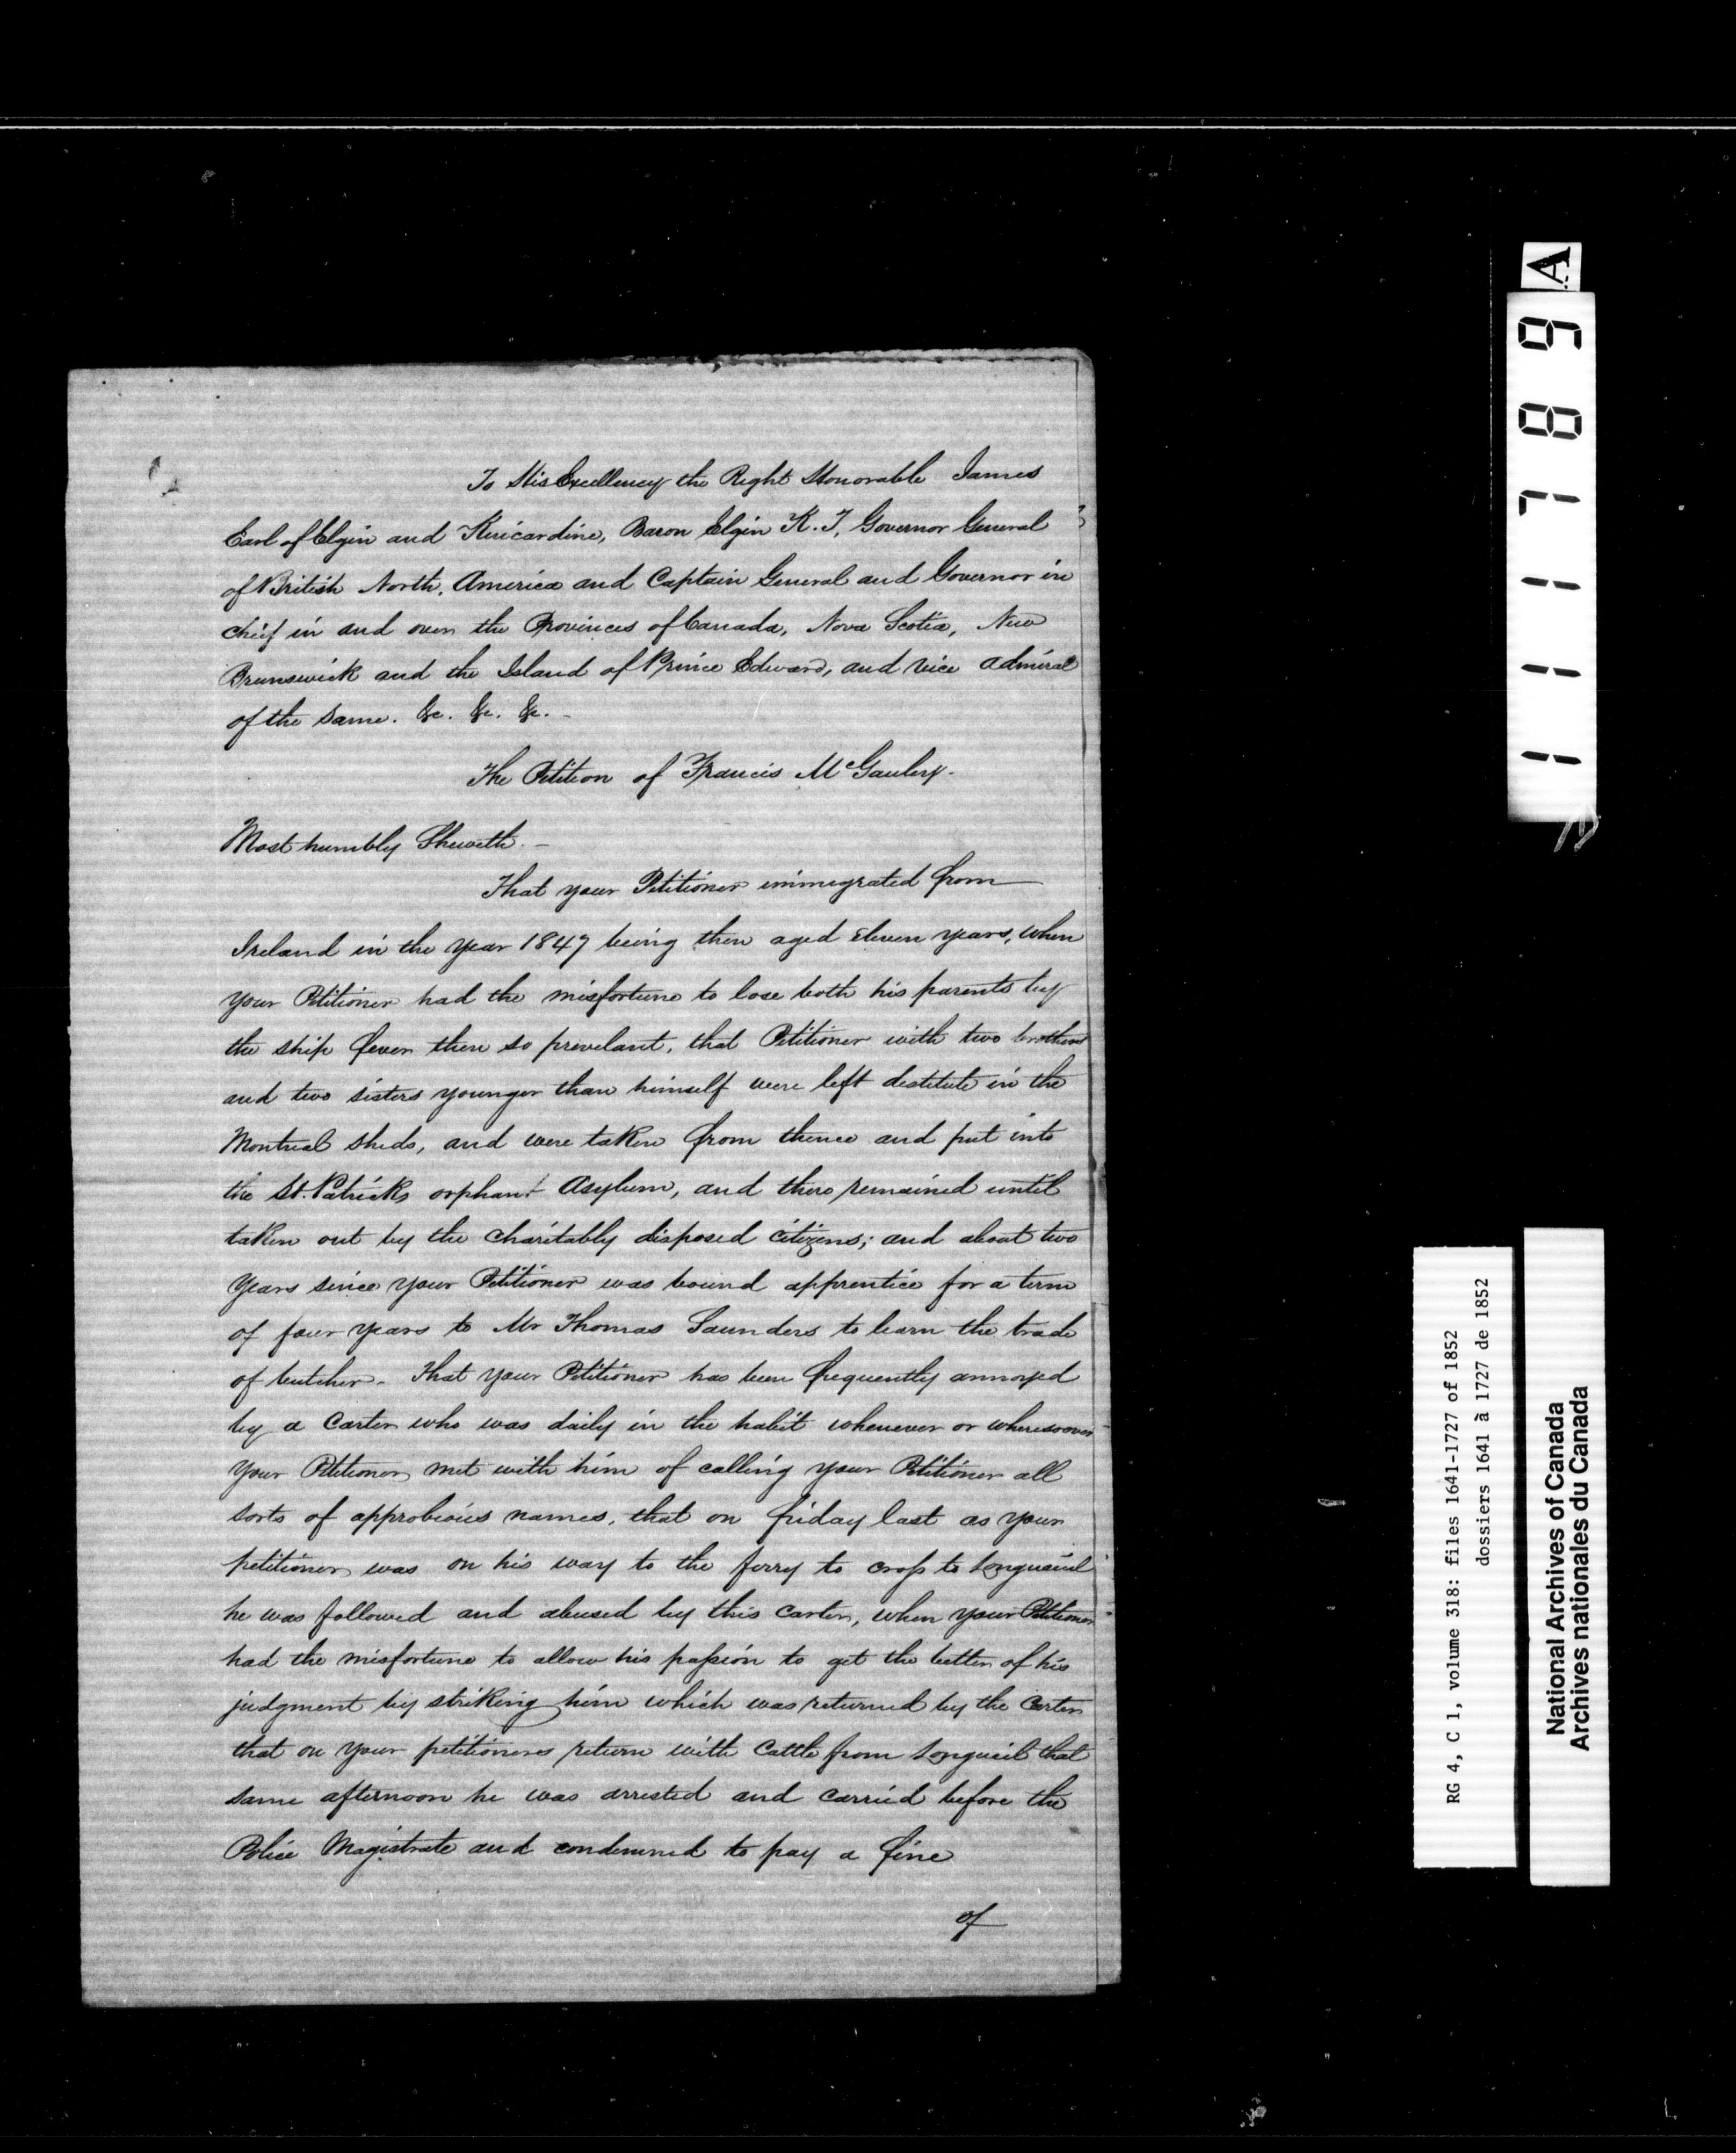 To His Excellency the Right Honorable James
Earl of Elgin and Kincardine, Baron Elgin K.T, Governor General
of British North. America and Captain General and Governor in
chief in and over the Provinces of Canada, Nova Scotia, New
Brunswick and the Island of Prince Edward, and vice admiral
of the same. &c. &c. &c. -
The Petition of Francis McGauley.
Most humbly Sheweth. -
That your Petitioner immegrated from
Ireland in the year 1847 being then aged eleven years, when
your Petitioner had the misfortune to lose both his parents by
the ship fever then so prevelant, that Petitioner with two brothers
and two sisters younger than himself were left destitute in the
Montreal sheds, and were taken from thence and put into
the St. Patricks orphant Asylum, and there remained until
taken out by the charitably disposed citizens; and about two
years since your Petitioner was bound apprentice for a term
of four years to Mr Thomas Saunders to learn the trade
of butcher - That your Petitioner has been frequently annoyed
by a Carter who was daily in the habit whenever or wheresoever
your Petitioner met with him of calling your Petitioner all
sorts of approbious names, that on friday last as your
petitioner was on his way to the ferry to cross to Longueuil
he was followed and abused by this carter, when your Petitioner
had the misfortune to allow his passion to get the better of his
judgment by striking him which was returned by the Carter
that on your petitioners return with Cattle from Longueil that
same afternoon he was arrested and carried before the
Police Magistrate and condemned to pay a fine
of
111789
A
RG 4, C 1, volume 318: files 1641-1727 of 1852
dossiers 1641 à 1727 de 1852
National Archives of Canada
Archives nationales du Canada